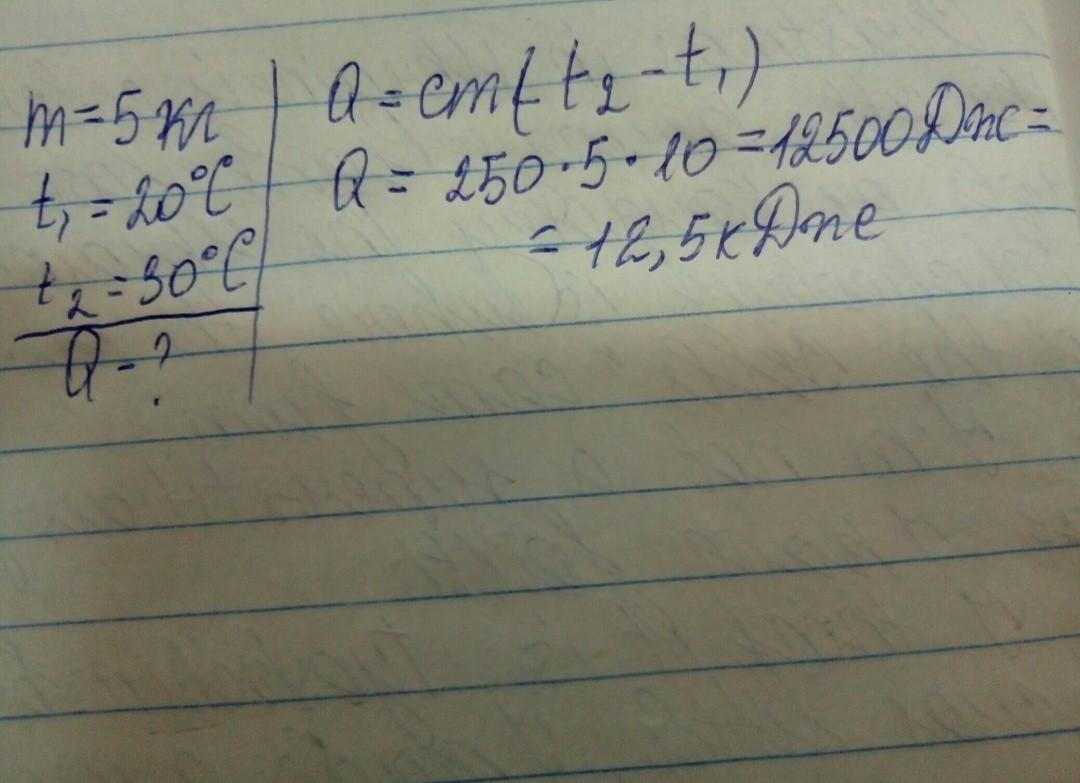 m=5 кг
t₁=20°C
t₂=30°C
Q-?
Q=cm(t₂-t₁)
Q= 250·5·10=12500Дж=
= 12,5кДж